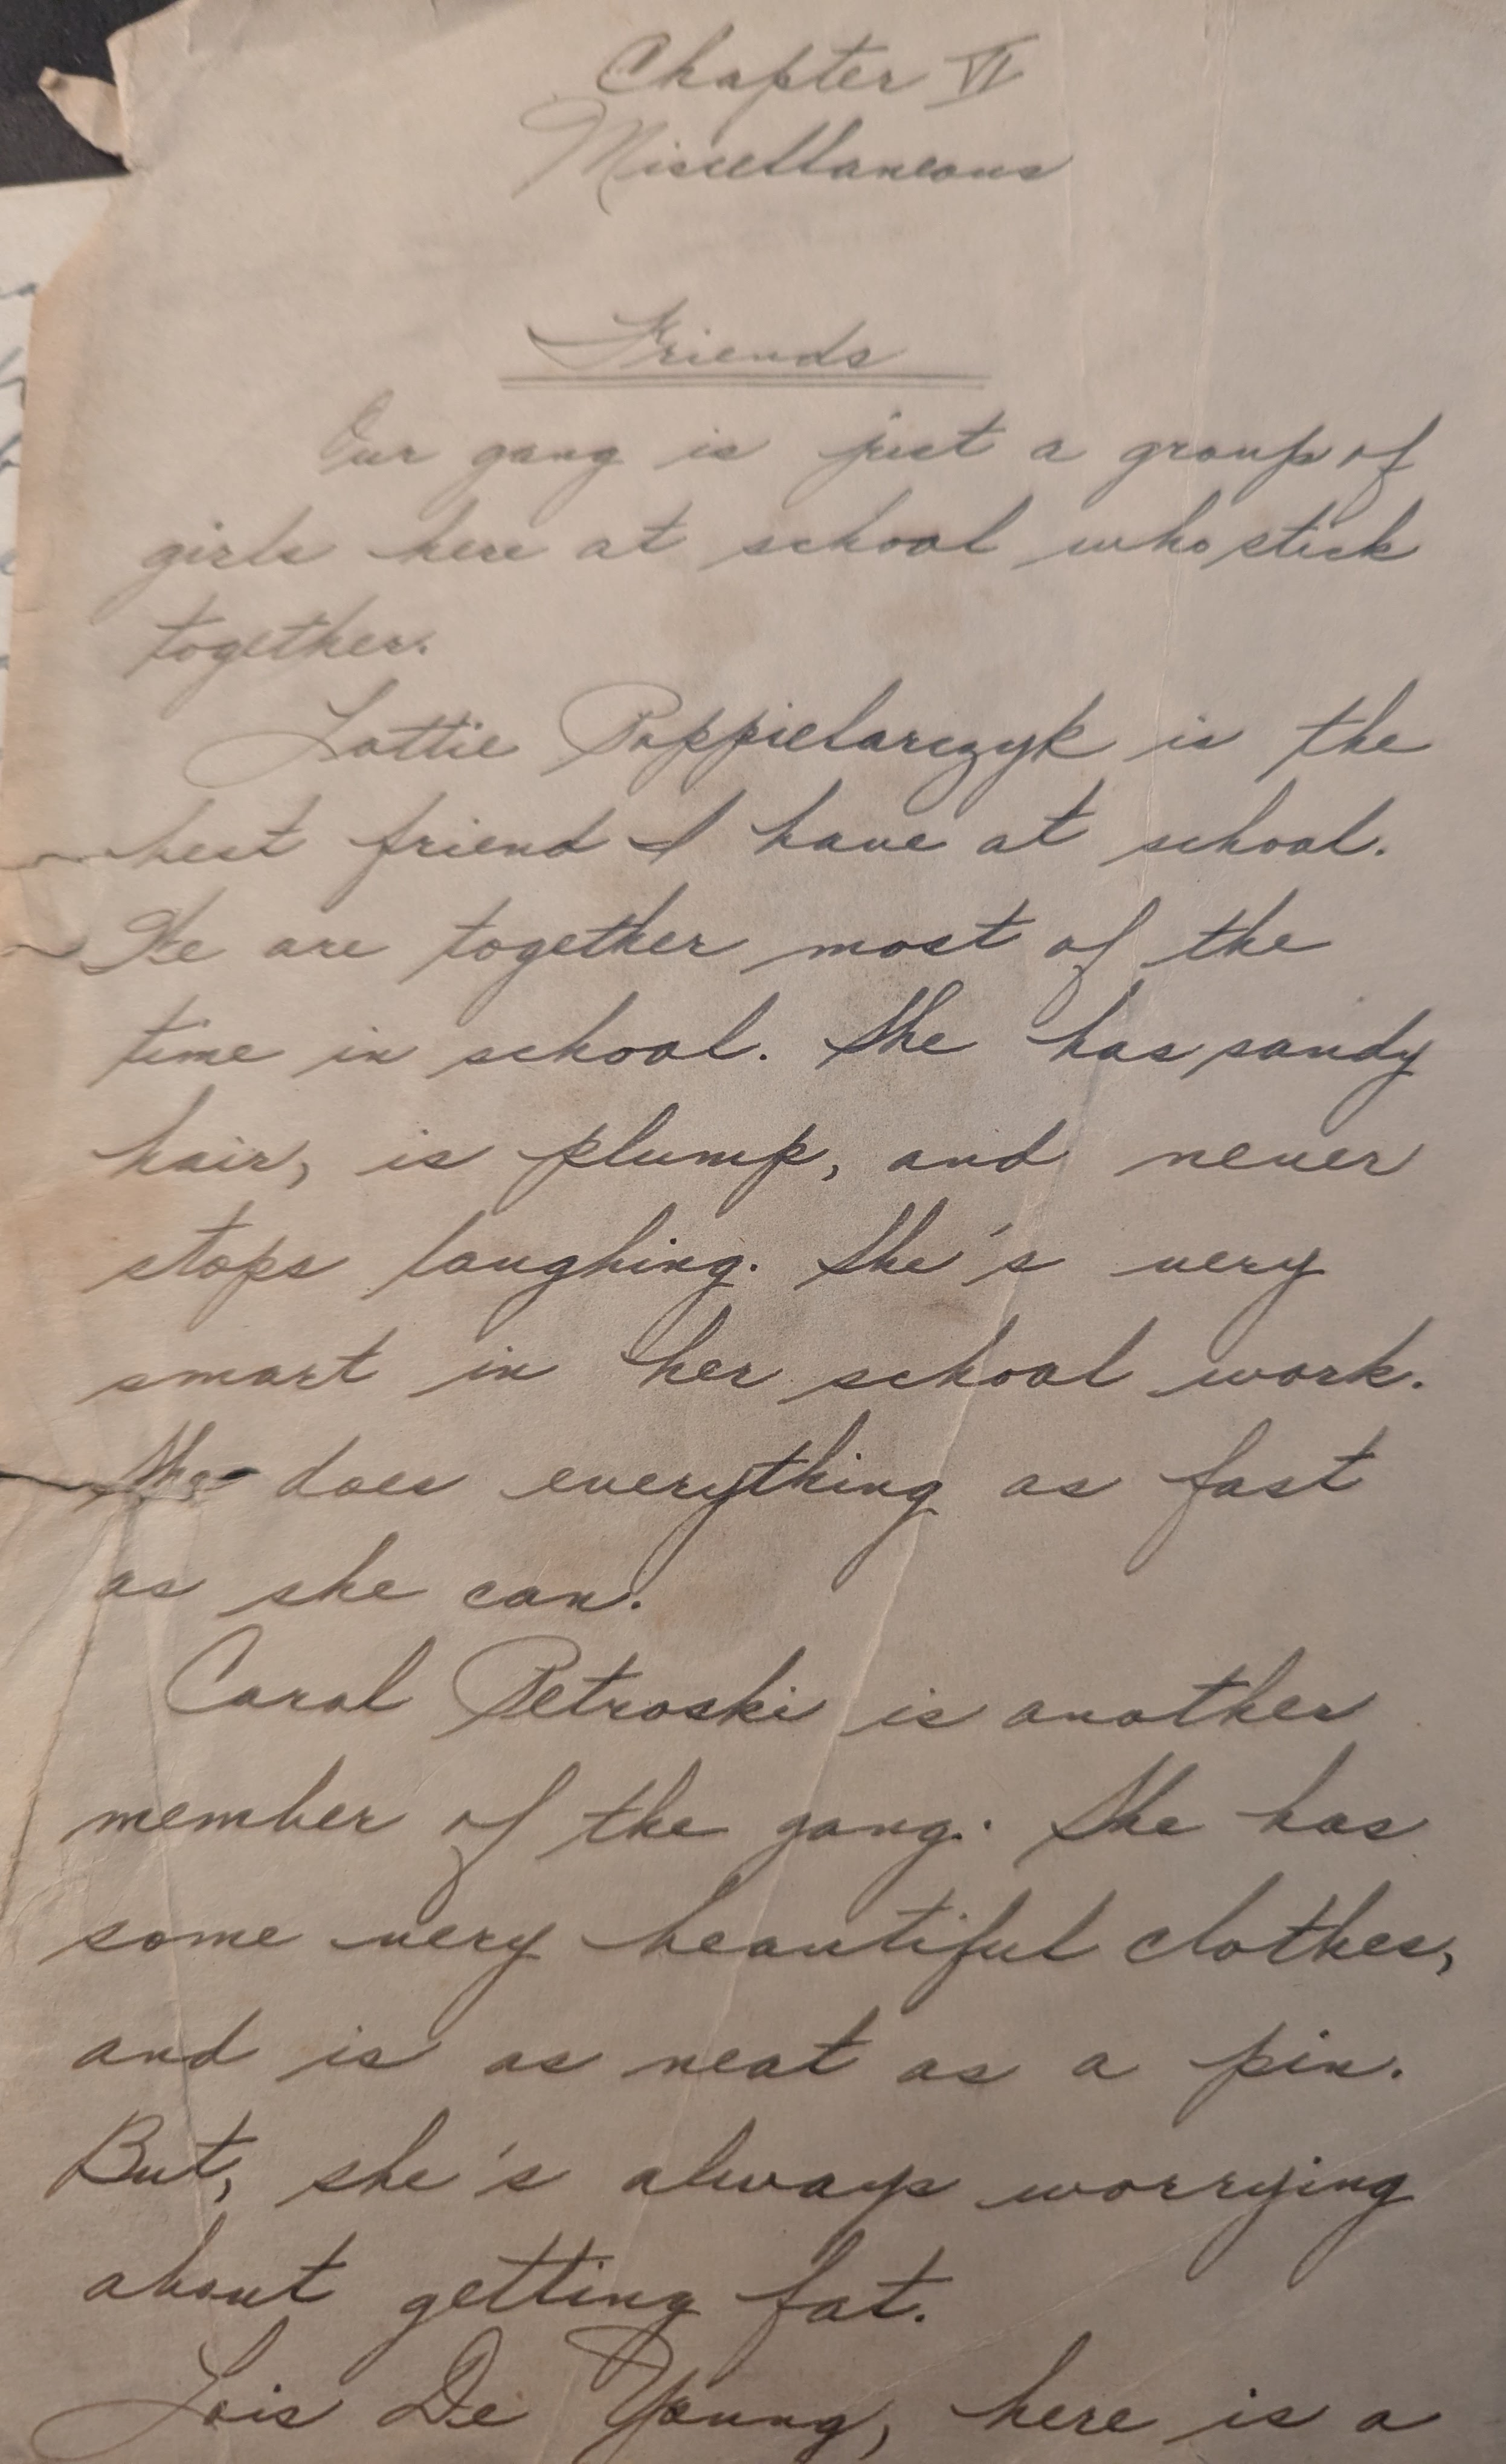 Chapter VI
Miscellaneous
Friends
Our gang is just a group of
girls here at school who stick
together.
Lottie Poppielarczyk is the
best friend I have at school.
We are together most of the
time in school. She has sandy
hair, is plump, and never
stops laughing. She's very
smart in her school work.
She does everything as fast
as she can.
Carol Petroski is another
member of the gang. She has
some very beautiful clothes,
and is as neat as a pin.
But, she's always worrying
about getting fat.
Lois De Young, here is a